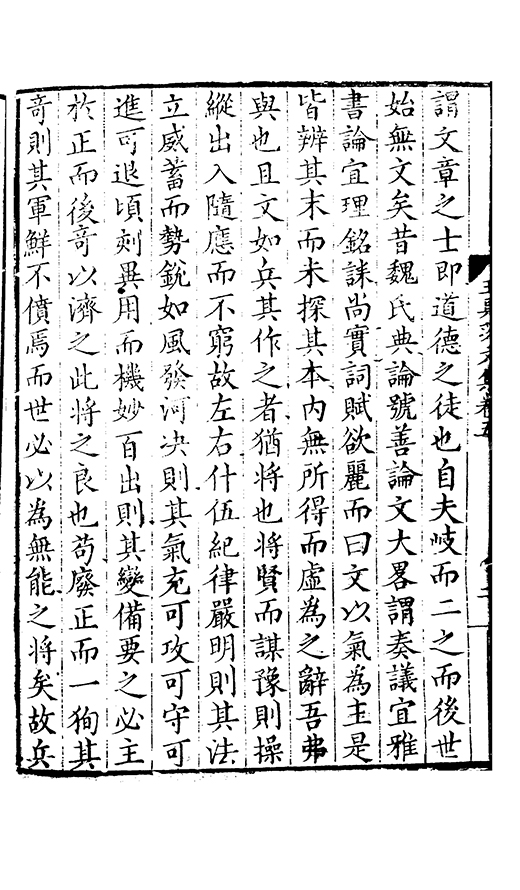 謂文章之士即道德之徒也自夫岐而二之而後世
始無文矣昔魏氏典論號善論文大畧謂奏議宜雅
書論宜理銘誄尚實詞賦欲麗而曰文以氣為主是
皆辨其末而未探其本內無所得而虛為之辭吾弗
與也且文如兵其作之者猶將也將賢而謀豫則操
縱出入隨應而不窮故左右什伍紀律嚴明則其法
立威蓄而勢銳如風發河决則其氣充可攻可守可
進可退頃刻異用而機妙百出則其變備要之必主
於正而後竒以濟之此將之良也苟廢正而一狥其
竒則其軍鮮不僨焉而世必以為無能之將矣故兵